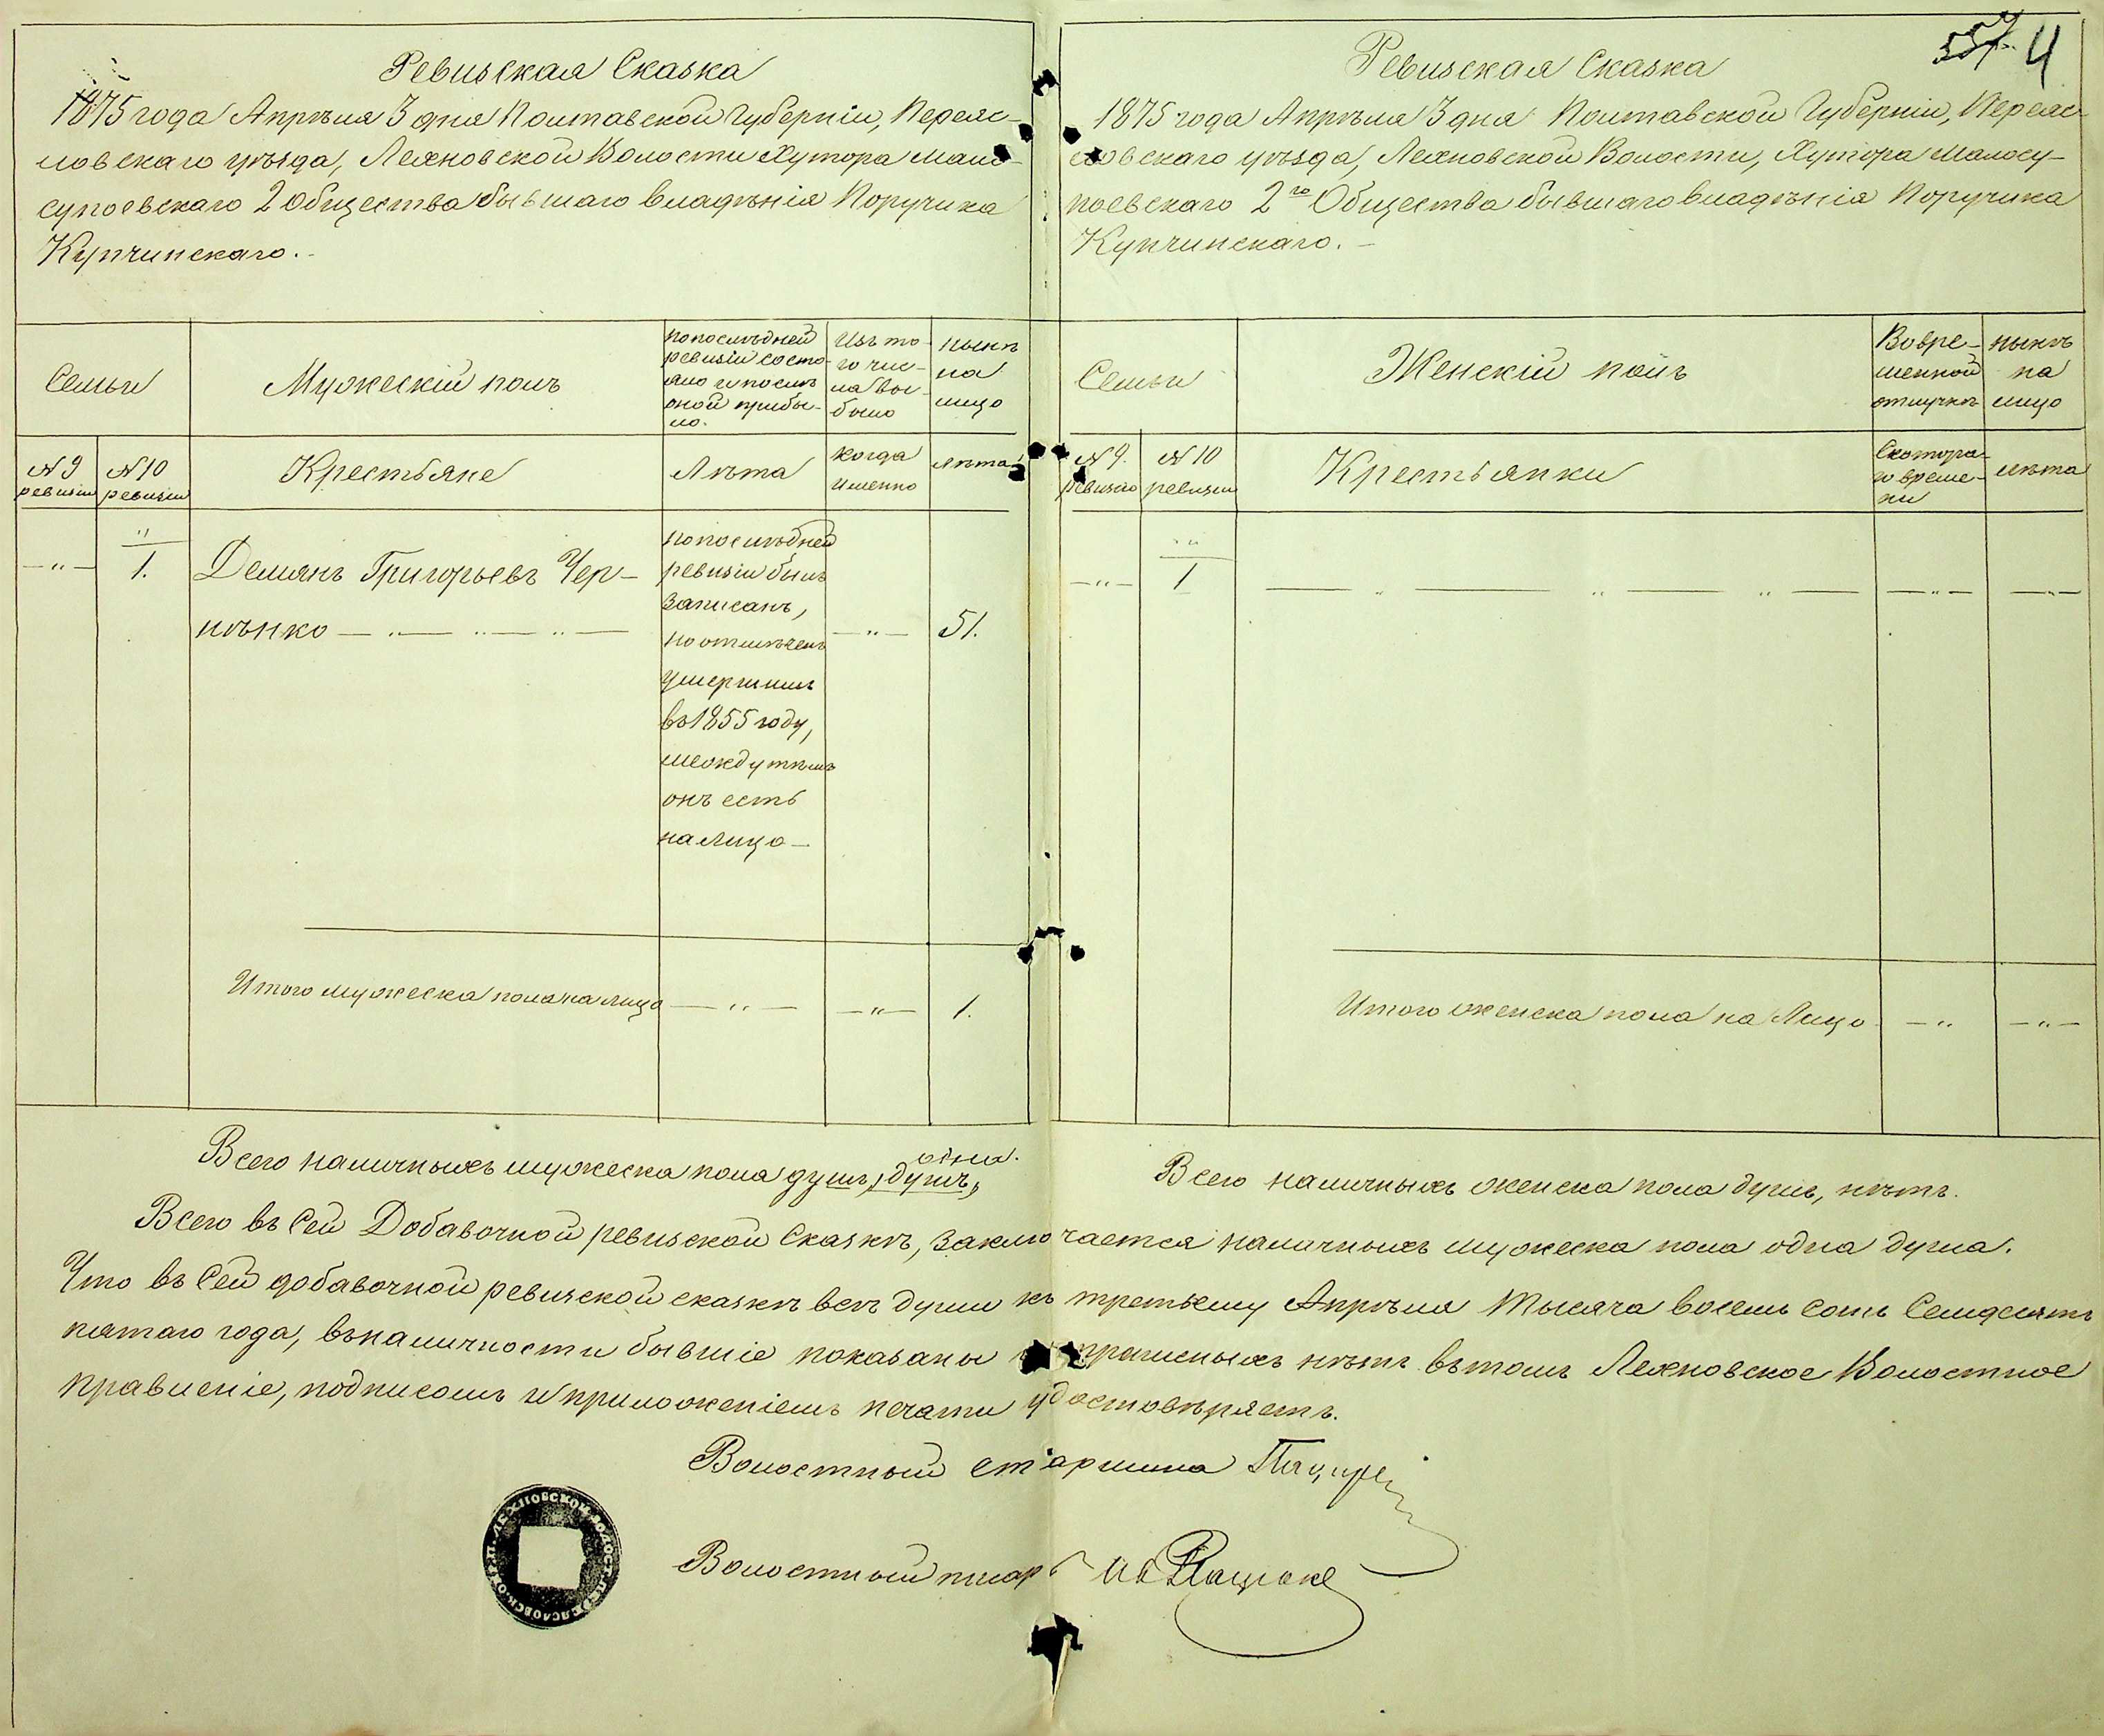 Ревизская Сказка
1875 года Апрѣля 3 дня Полтавской Губерніи, Переяс-
ловскаго уѣзда, Лехновской Волости Хутора Мало-
супоевскаго 2 Общества бывшаго владѣнія Поручика
Купчинскаго.
Семьи
Мужескій полъ
По послѣдней
ревизіи состо-
яло и послѣ
оной прибы-
ло.
Изъ то-
го чис-
ла вы-
было
нынѣ
на
лицо
№ 9
ревизіи
№ 10
ревизіи
Крестьяне
Лѣта
когда
именно
лѣта
"
— " —
1.
Демянъ Григорьевъ Чер-
нѣнко — " — " — " —
по послѣдней
ревизіи былъ
записанъ,
но отмѣченъ
умершимъ
въ 1855 году,
между тѣмъ
онъ есть
на лицо —
— " —
51.
Итого мужеска пола на лицо — " — — " — 1.
Всего наличныхъ мужеска пола душъ, душъ,
одна.
557 4
Ревизская Сказка
1875 года Апрѣля 3 дня Полтавской Губерніи, Переяс-
ловскаго уѣзда, Лехновской Волости, Хутора Малосу-
поевскаго 2го Общества бывшаго владѣнія Поручика
Купчинскаго. —
Семьи
Женскій полъ
Во вре-
менной
отлучкѣ
нынѣ
на
лицо
№ 9.
ревизіи
№ 10
ревизіи
Крестьянки
Съ котора-
го време-
ни
лѣта
"
— " —
1
— " — " — " — — " — — " —
Итого женска пола на Лицо — " — " —
Всего наличныхъ женска пола душъ, нѣтъ.
Всего въ сей Добавочной ревизской Сказкѣ, заключается наличныхъ мужеска пола одна душа.
Что въ сей добавочной ревизской сказкѣ всѣ души къ третьему Апрѣля Тысяча восемь сотъ Семдесятъ
пятаго года, въ наличности бывшіе показаны прописныхъ нѣтъ въ томъ Лехновское Волостное
Правленіе, подписомъ и приложеніемъ печати удостовѣряетъ.
Волостный старшина
Волостный писарь